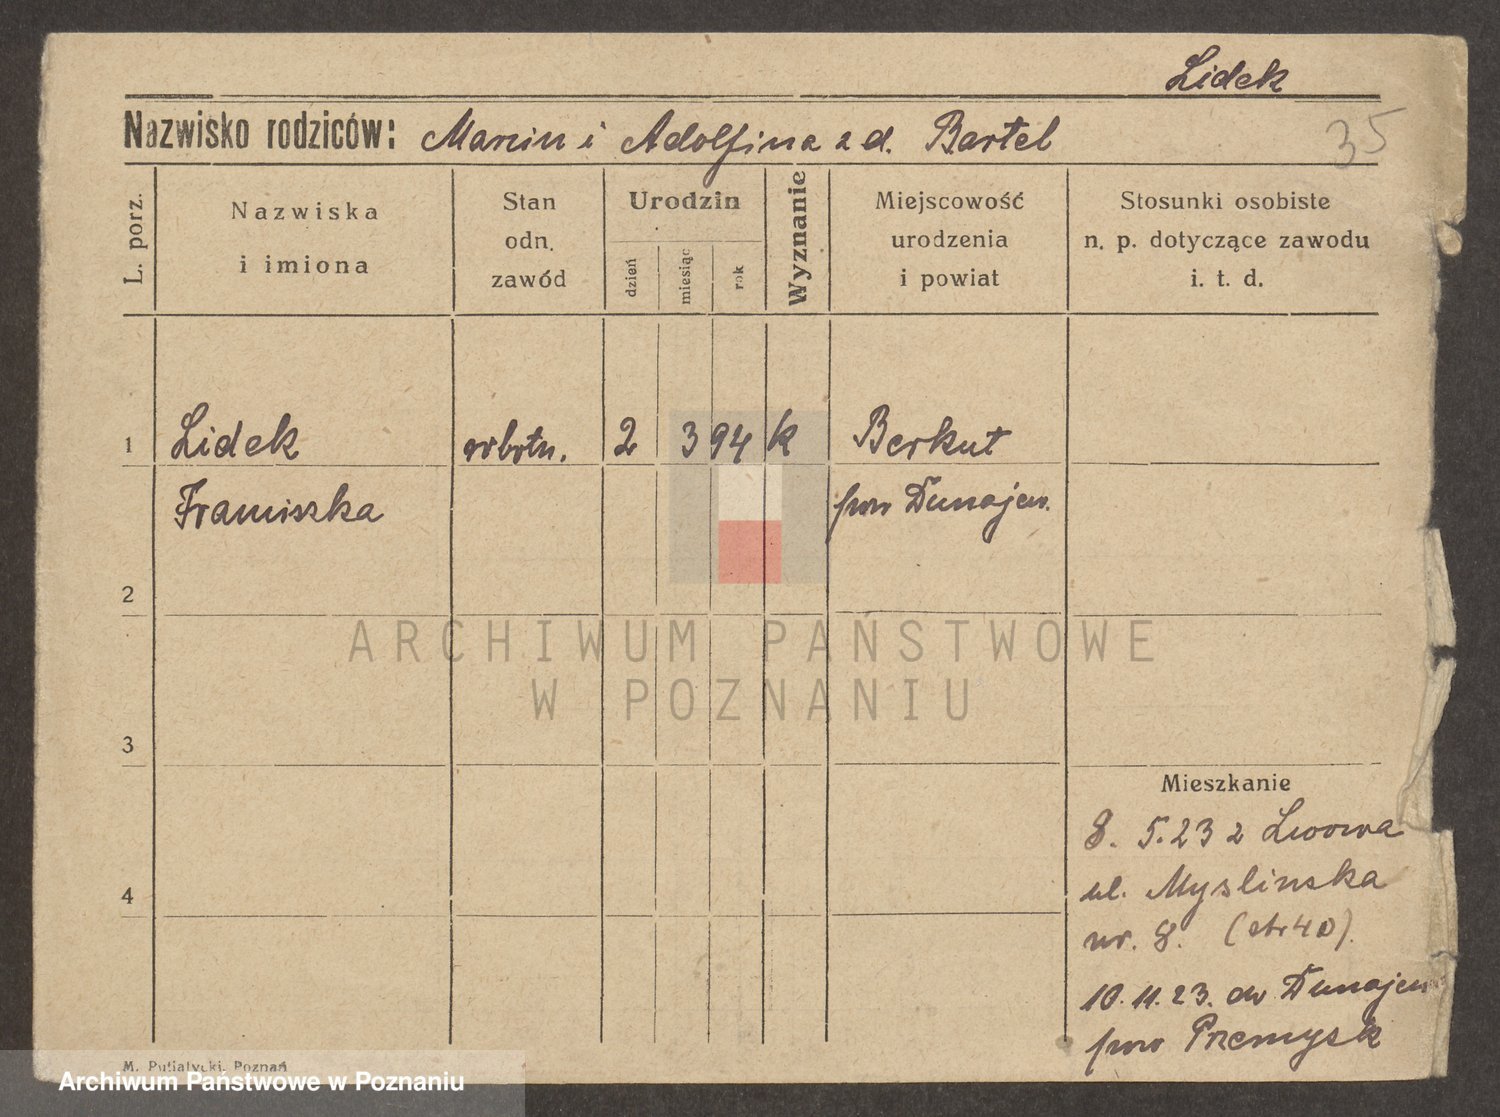 Lidek
Nazwisko rodziców: Marcin i Adolfina z d. Bartel
35
L. porz.
Nazwiska
i imiona
Stan
odn.
zawód
Urodzin
dzień
miesiąc
rok
Wyznanie
Miejscowość
urodzenia
i powiat
Stosunki osobiste
n. p. dotyczące zawodu
i. t. d.
1 Lidek robotn. 2 3 94 k Berkut
Franciszka pow Dunajew.
2
ARCHIWUM PAŃSTWOWE
W POZNANIU
3
Mieszkanie
8. 5.23 z Lwowa
4
ul. Myslinska
nr. 8.
10.11.23. do Dunajew
pow Przemysk
M. Putiatycki, Poznań
Archiwum Państwowe w Poznaniu